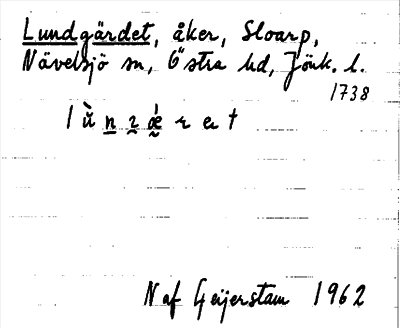 Lundgärdet, åker, Sloarp,
Nävelsjö sn, Östra hd, Jönk. l.
1738
N af Geijerstam 1962